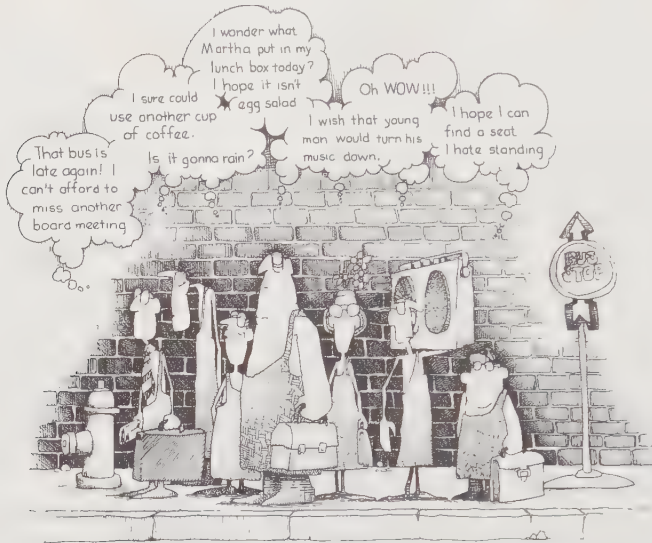 That bus is
late again! I
can't afford to
miss another
board meeting
I sure could
use another cup
of coffee.
Is it gonna rain?
I wonder what
Martha put in my
lunch box today?
I hope it isn't
egg salad
Oh WOW!!!
I wish that young
man would turn his
music down.
I hope I can
find a seat
I hate standing
BUS
STOP